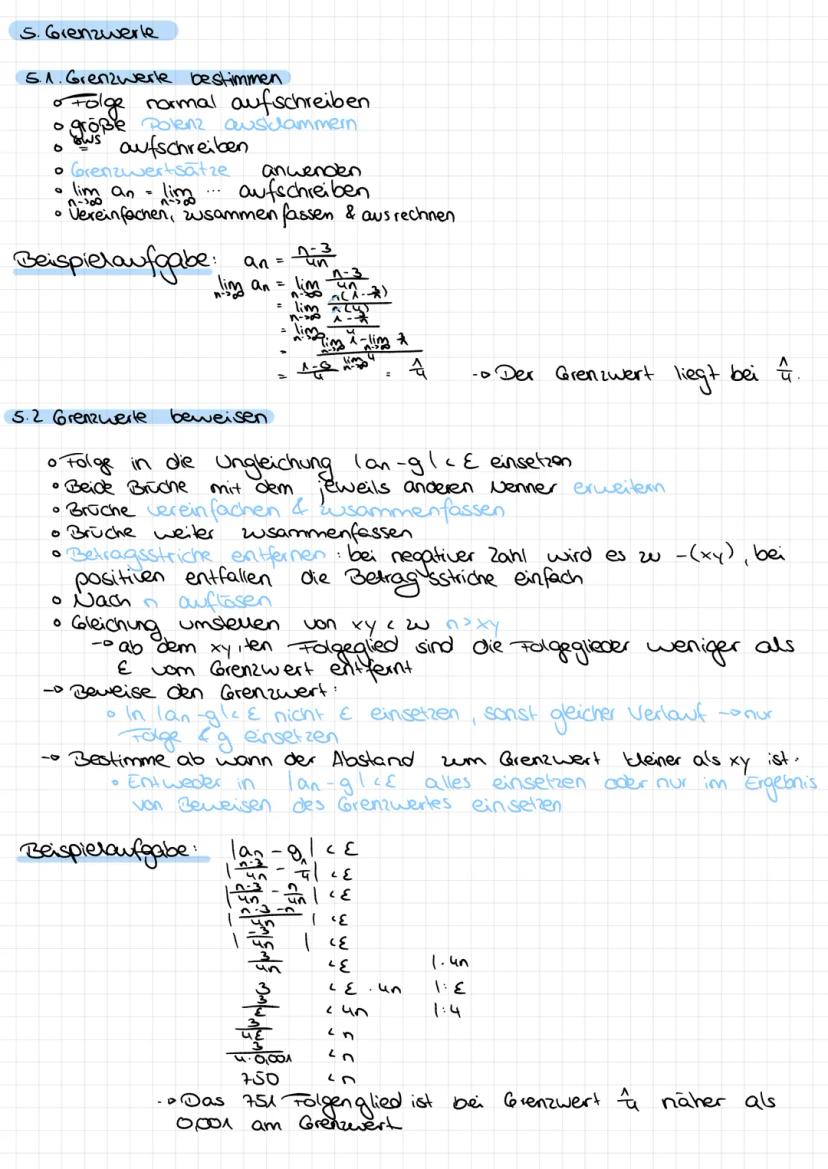 5. Grenzwerte
5.1. Grenzwerte bestimmen
◦ Folge normal aufschreiben
◦ größe Potenz ausklammern
◦ GWS = aufschreiben
◦ Grenzwertsätze anwenden
◦ lim n→∞ an = lim n→∞ ... aufschreiben
◦ Vereinfachen, zusammenfassen & ausrechnen
Beispielaufgabe: an = (n-3)/(4n)
lim n→∞ an = lim n→∞ (n-3)/(4n)
= lim n→∞ n(1-3/n)/n(4)
= lim n→∞ (1-3/n)/4
= (lim n→∞ 1 - lim n→∞ 3/n)/(lim n→∞ 4)
= (1-0)/4 = 1/4 → Der Grenzwert liegt bei 1/4.
5.2 Grenzwerte beweisen
◦ Folge in die Ungleichung |an-g| < ε einsetzen
◦ Beide Brüche mit dem jeweils anderen Nenner erweitern
◦ Brüche vereinfachen & zusammenfassen
◦ Brüche weiter zusammenfassen
◦ Betragsstriche entfernen : bei negativer Zahl wird es zu -(xy), bei
positiven entfallen die Betragsstriche einfach
◦ Nach n auflösen
◦ Gleichung umstellen von xy < zu n>xy
→ ab dem xy,ten Folgeglied sind die Folgeglieder weniger als
ε vom Grenzwert entfernt
→ Beweise den Grenzwert:
◦ In |an-g|<ε nicht ε einsetzen, sonst gleicher Verlauf → nur
Folge & g einsetzen
→ Bestimme ab wann der Abstand zum Grenzwert kleiner als xy ist.
◦ Entweder in |an-g|<ε alles einsetzen oder nur im Ergebnis
von Beweisen des Grenzwertes einsetzen
Beispielaufgabe: |an - g| < ε
|(n-3)/(4n) - 1/4| < ε
|(n-3)/(4n) - n/(4n)| < ε
|(n-3-n)/(4n)| < ε
|-3/(4n)| < ε
3/(4n) < ε |·4n
3 < ε · 4n |:ε
3/ε < 4n |:4
3/(4ε) < n
3/(4·0,001) < n
750 < n
→ Das 751 Folgenglied ist bei Grenzwert 1/4 näher als
0,001 am Grenzwert